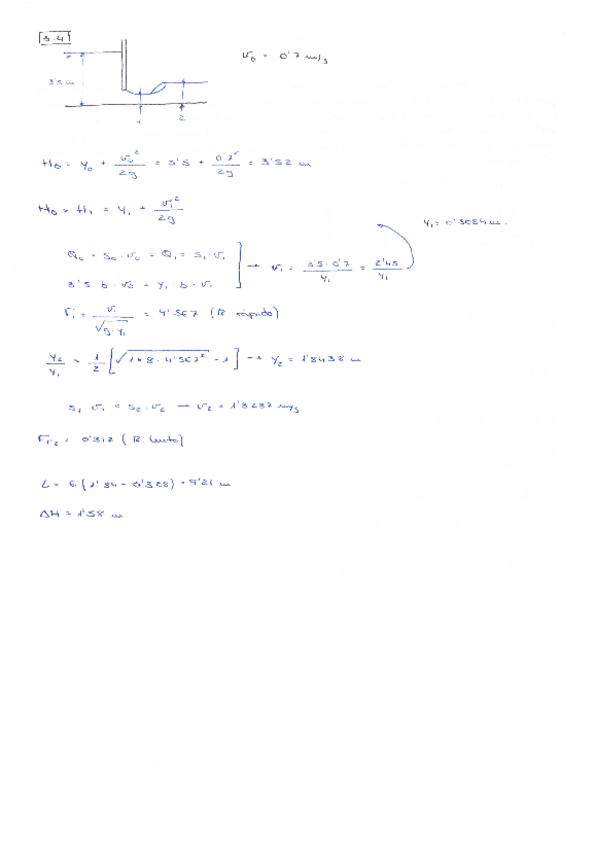 3.4
v₀ = 0'7 m/s
3'5 m
1 2
H₀ = y₀ + v₀²/2g = 3'5 + 0'7²/2g = 3'52 m
H₀ = H₁ = y₁ + v₁²/2g
y₁ = 0'3084 m.
Q₀ = S₀ · v₀ = Q₁ = S₁ · v₁
3'5 · b · v₀ = y₁ · b · v₁
→ v₁ = 3'5 · 0'7 / y₁ = 2'45 / y₁
F₁ = v₁ / √(g · y₁) = 4'567 (R. rápido)
y₂/y₁ = 1/2 [√(1+8 · 4'567²) - 1] → y₂ = 1'8438 m
S₁ v₁ = S₂ · v₂ → v₂ = 1'3287 m/s
Fr₂ = 0'312 (R. lento)
L = 6 (1'84 - 0'308) = 9'21 m
ΔH = 1'58 m